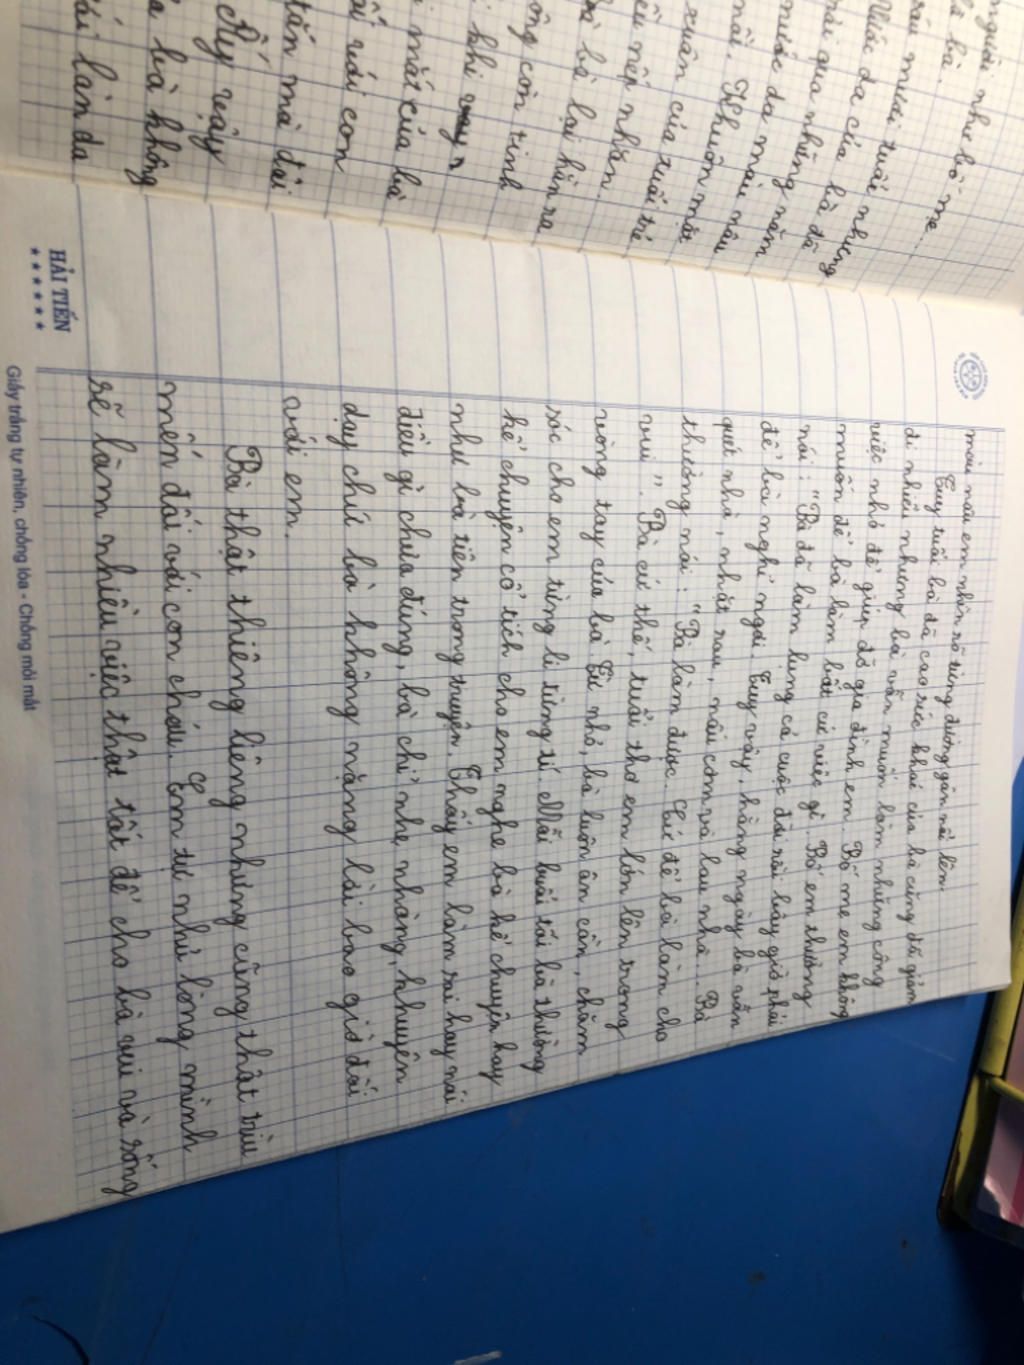 người như bố mẹ...
là bà.
sáu mươi tuổi nhưng
Nước da của bà đã
trải qua những năm
nước da màu nâu
nổi. Khuôn mặt
xuân của tuổi trẻ
nếp nhăn.
bà lại hằn ra
ông còn tinh
khi
mắt của bà
với con
tấn mà đôi
Ấy vậy
bà không
làn da
màu nâu em nhìn rõ từng đường gân nổi lên.
Tuy tuổi bà đã cao sức khoẻ của bà cũng đã giảm
đi nhiều nhưng bà vẫn muốn làm những công
việc nhỏ để giúp đỡ gia đình em. Bố mẹ em không
muốn để bà làm bất cứ việc gì. Bố em thường
nói: "Bà đã làm lụng cả cuộc đời rồi bây giờ phải
để bà nghỉ ngơi. Tuy vậy, hằng ngày bà vẫn
quét nhà, nhặt rau, nấu cơm và lau nhà... Bà
thường nói: "Bà làm được. Cứ để bà làm cho
vui". Bà cứ thế, tuổi thơ em lớn lên trong
vòng tay của bà. Từ nhỏ, bà luôn ân cần, chăm
sóc cho em từng li từng tí. Mỗi buổi tối bà thường
kể chuyện cổ tích cho em nghe bà kể chuyện hay
như bà tiên trong truyện. Thấy em làm sai hay nói
điều gì chưa đúng, bà chỉ nhẹ nhàng, khuyên
dạy chứ bà không nặng lời bao giờ đối
với em.
Bà thật thiêng liêng nhưng cũng thật trìu
mến đối với con cháu. Em tự nhủ lòng mình
sẽ làm nhiều việc thật tốt để cho bà vui và sống
HẢI TIẾN
Giấy trắng tự nhiên, chống lóa - Chống mỏi mắt